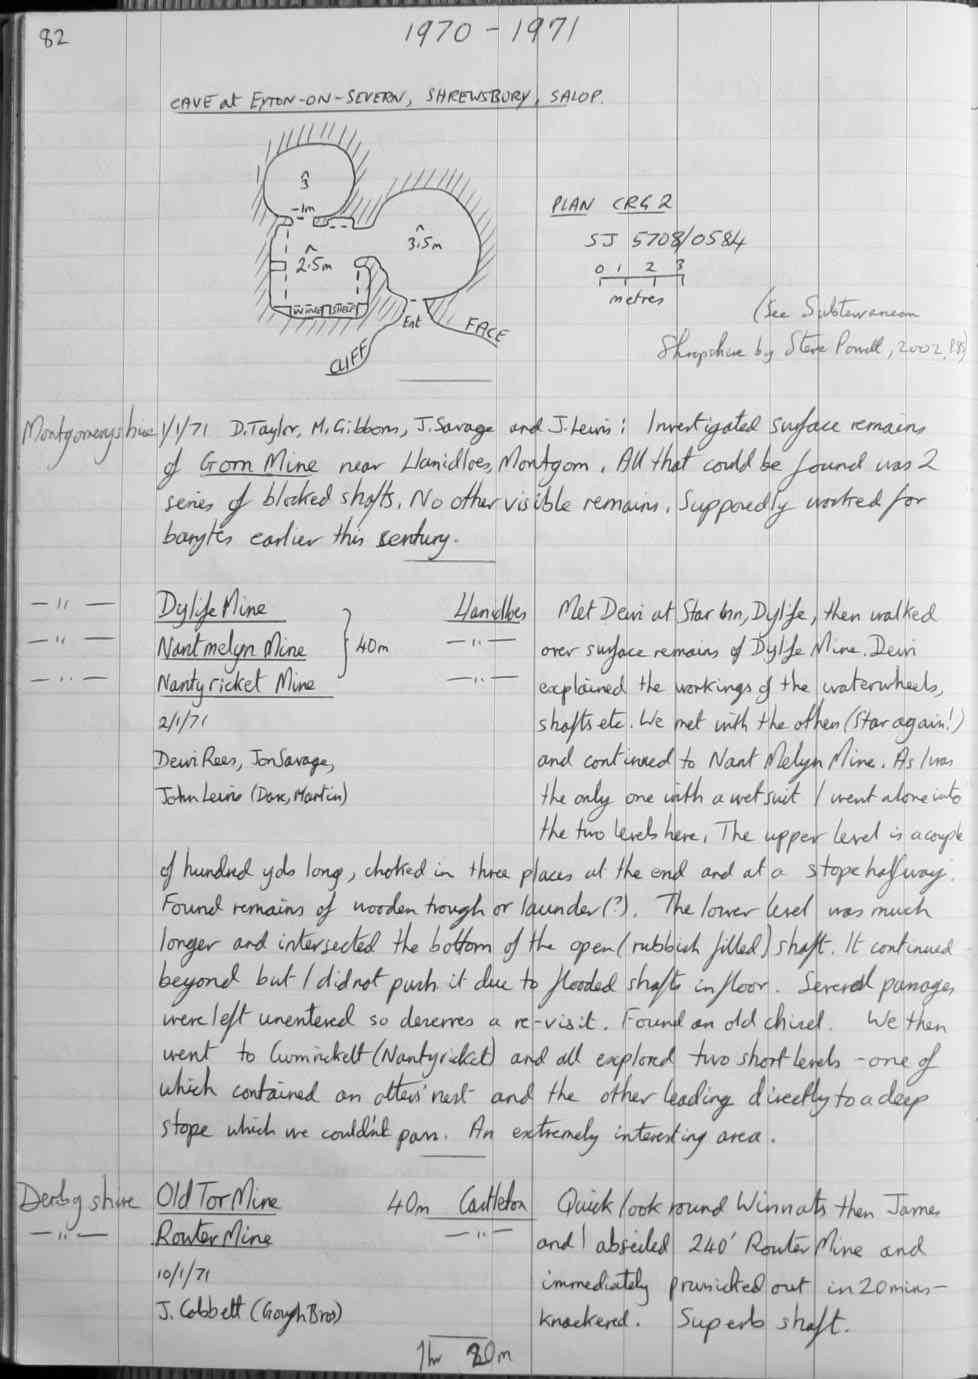 82
1970 - 1971
CAVE at EYTON-ON-SEVERN, SHREWSBURY, SALOP.
3
-1m
3.5m
2.5m
WINE SHELF
Ent
CLIFF
FACE
PLAN CRG 2
SJ 5708/0584
0 1 2 3
metres
(See Subterranean
Shropshire by Steve Powell, 2002, P85)
Montgomeryshire 1/1/71 D.Taylor, M.Gibbons, J.Savage and J.Lewis: Investigated surface remains
of Gorn Mine near Llanidloes, Montgom. All that could be found was 2
series of blocked shafts. No other visible remains. Supposedly worked for
barytes earlier this century.
— " — Dylife Mine Llanidloes Met Dewi at Star Inn, Dylife, then walked
— " — Nantmelyn Mine } 40m — " — over surface remains of Dylife Mine. Dewi
— " — Nantyricket Mine — " — explained the workings of the waterwheels,
2/1/71 shafts etc. We met with the others (Star again!)
Dewi Rees, Jon Savage, and continued to Nant Melyn Mine. As I was
John Lewis (Dave, Martin) the only one with a wet suit I went alone into
the two levels here. The upper level is a couple
of hundred yds long, choked in three places at the end and at a stope halfway.
Found remains of wooden trough or launder(?). The lower level was much
longer and intersected the bottom of the open (rubbish filled) shaft. It continued
beyond but I did not push it due to flooded shafts in floor. Several passages
were left unentered so deserves a re-visit. Found an old chisel. We then
went to Cwmrickett (Nantyricket) and all explored two short levels - one of
which contained an otters' nest and the other leading directly to a deep
stope which we couldn't pass. An extremely interesting area.
Derbyshire Old Tor Mine 40m Castleton Quick look round Winnats then James
— " — Router Mine — " — and I abseiled 240' Router Mine and
10/1/71 immediately prusicked out in 20 mins -
J. Cobbett (Gough Bros) knackered. Superb shaft.
1hr 20m